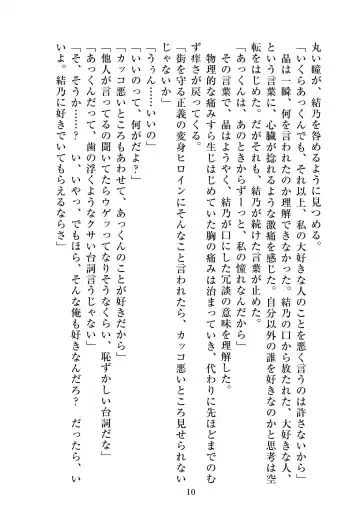 丸い瞳が、結乃を咎めるように見つめる。
「いくらあっくんでも、それ以上、私の大好きな人のことを悪く言うのは許さないから」
晶は一瞬、何を言われたのか理解できなかった。結乃の口から放たれた、大好きな人、
という言葉に、心臓が捻れるような激痛を感じた。自分以外の誰を好きなのかと思考は空
転をはじめた。だがそれも、結乃が続けた言葉が止めた。
「あっくんは、あのときからずーっと、私の憧れなんだから」
その言葉で、晶はようやく、結乃が口にした冗談の意味を理解した。
物理的な痛みすら生じはじめていた胸の痛みは治まっていき、代わりに先ほどまでのむ
ず痒さが戻ってくる。
「街を守る正義の変身ヒロインにそんなこと言われたら、カッコ悪いところ見せられない
じゃないか」
「うぅん……いいの」
「いいのって、何がだよ?」
「カッコ悪いところもあわせて、あっくんのことが好きだから」
「他人が言ってるの聞いてたらウゲッってなりそうなくらい、恥ずかしい台詞だな」
「あっくんだって、歯の浮くようなクサい台詞言うじゃない」
「そ、そうか……? い、いやっ、でもほら、そんな俺も好きなんだろ? だったら、い
いよ。結乃に好きでいてもらえるならさ」
10